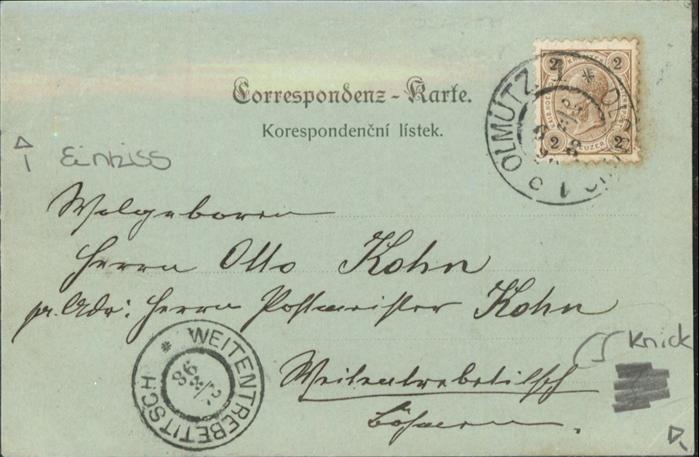 Correspondenz-Karte.
Korespondenční lístek.
2 2
2 KREUZER 2
OLMÜTZ 1
Einriss
Wolgeboren
Herrn Otto Kohn
pr. Adr: Herrn Postmeister Kohn
Knick
Weitentrebetitsch
Böhmen.
* WEITENTREBETITSCH
98